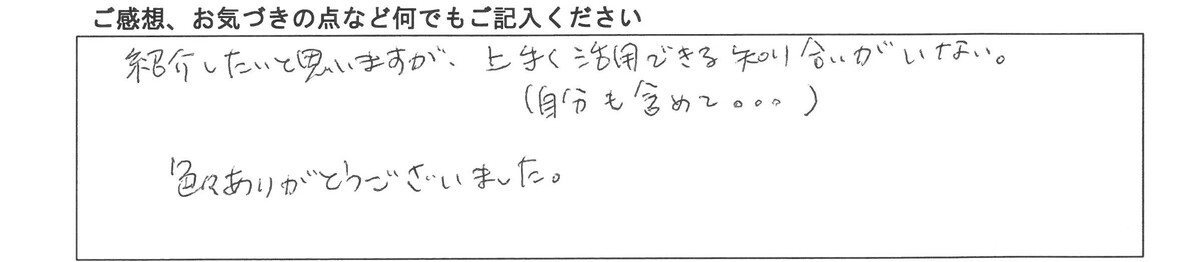 ご感想、お気づきの点など何でもご記入ください
紹介したいと思いますが、上手く活用できる知り合いがいない。
(自分も含めて。。。)
色々ありがとうございました。